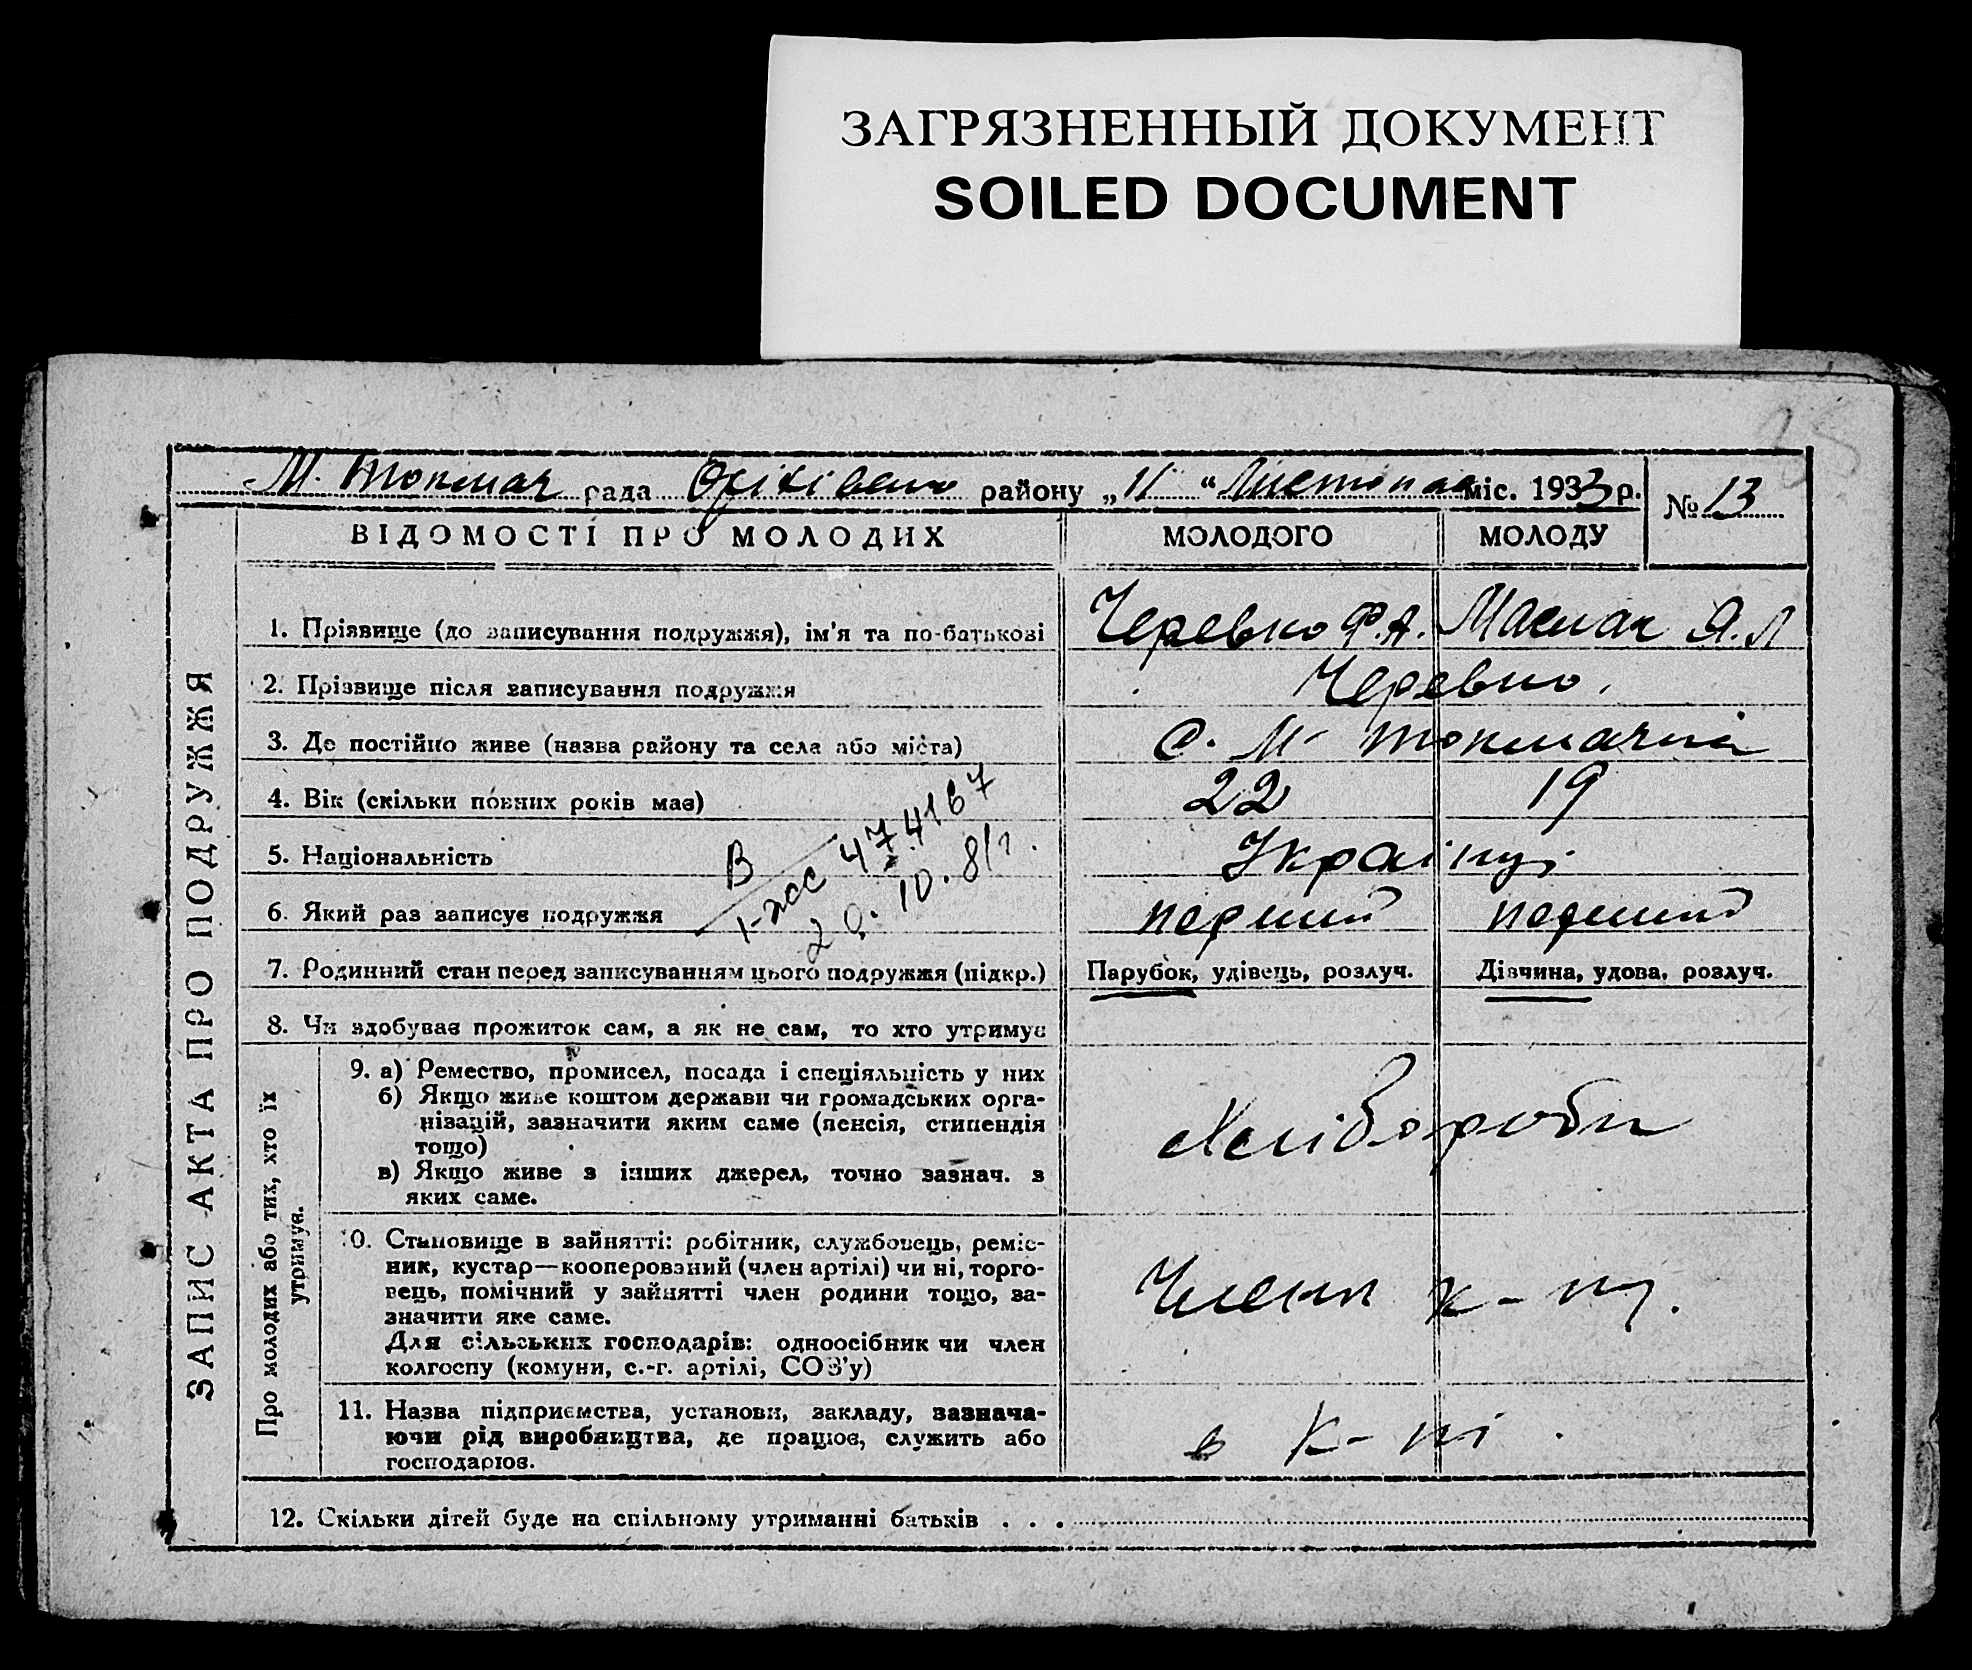 ЗАГРЯЗНЕННЫЙ ДОКУМЕНТ
SOILED DOCUMENT
М. Токмач рада Оріхівськ району „11“ Листопад міс. 1933 р.
№ 13
ВІДОМОСТІ ПРО МОЛОДИХ МОЛОДОГО МОЛОДУ
ЗАПИС АКТА ПРО ПОДРУЖЖЯ
1. Прізвище (до записування подружжя), ім'я та по-батькові Черевко Ф.А. Масмач Я.Л
2. Прізвище після записування подружжя Черевко.
3. Де постійно живе (назва району та села або міста) С. М. Токмачка
4. Вік (скільки повних років має) 22 19
5. Національність Українці
6. Який раз записує подружжя перший перший
В
1-жсс 474167
20.10.81г.
7. Родинний стан перед записуванням цього подружжя (підкр.) Парубок, удівець, розлуч. Дівчина, удова, розлуч.
8. Чи здобуває прожиток сам, а як не сам, то хто утримує
Про молодих або тих, хто їх
утримує.
9. а) Ремество, промисел, посада і спеціяльність у них
б) Якщо живе коштом держави чи громадських орга-
нізацій, зазначити яким саме (пенсія, стипендія
тощо)
в) Якщо живе з інших джерел, точно зазнач. з
яких саме.
Хлібороби
10. Становище в зайнятті: робітник, службовець, реміс-
ник, кустар—кооперований (член артілі) чи ні, торго-
вець, помічний у зайнятті член родини тощо, за-
значити яке саме.
Для сільських господарів: одноосібник чи член
колгоспу (комуни, с.-г. артілі, СОЗ'у)
Члени к-пу.
11. Назва підприємства, установи, закладу, зазнача-
ючи рід виробництва, де працює, служить або
господарює.
в К-пі.
12. Скільки дітей буде на спільному утриманні батьків . . .